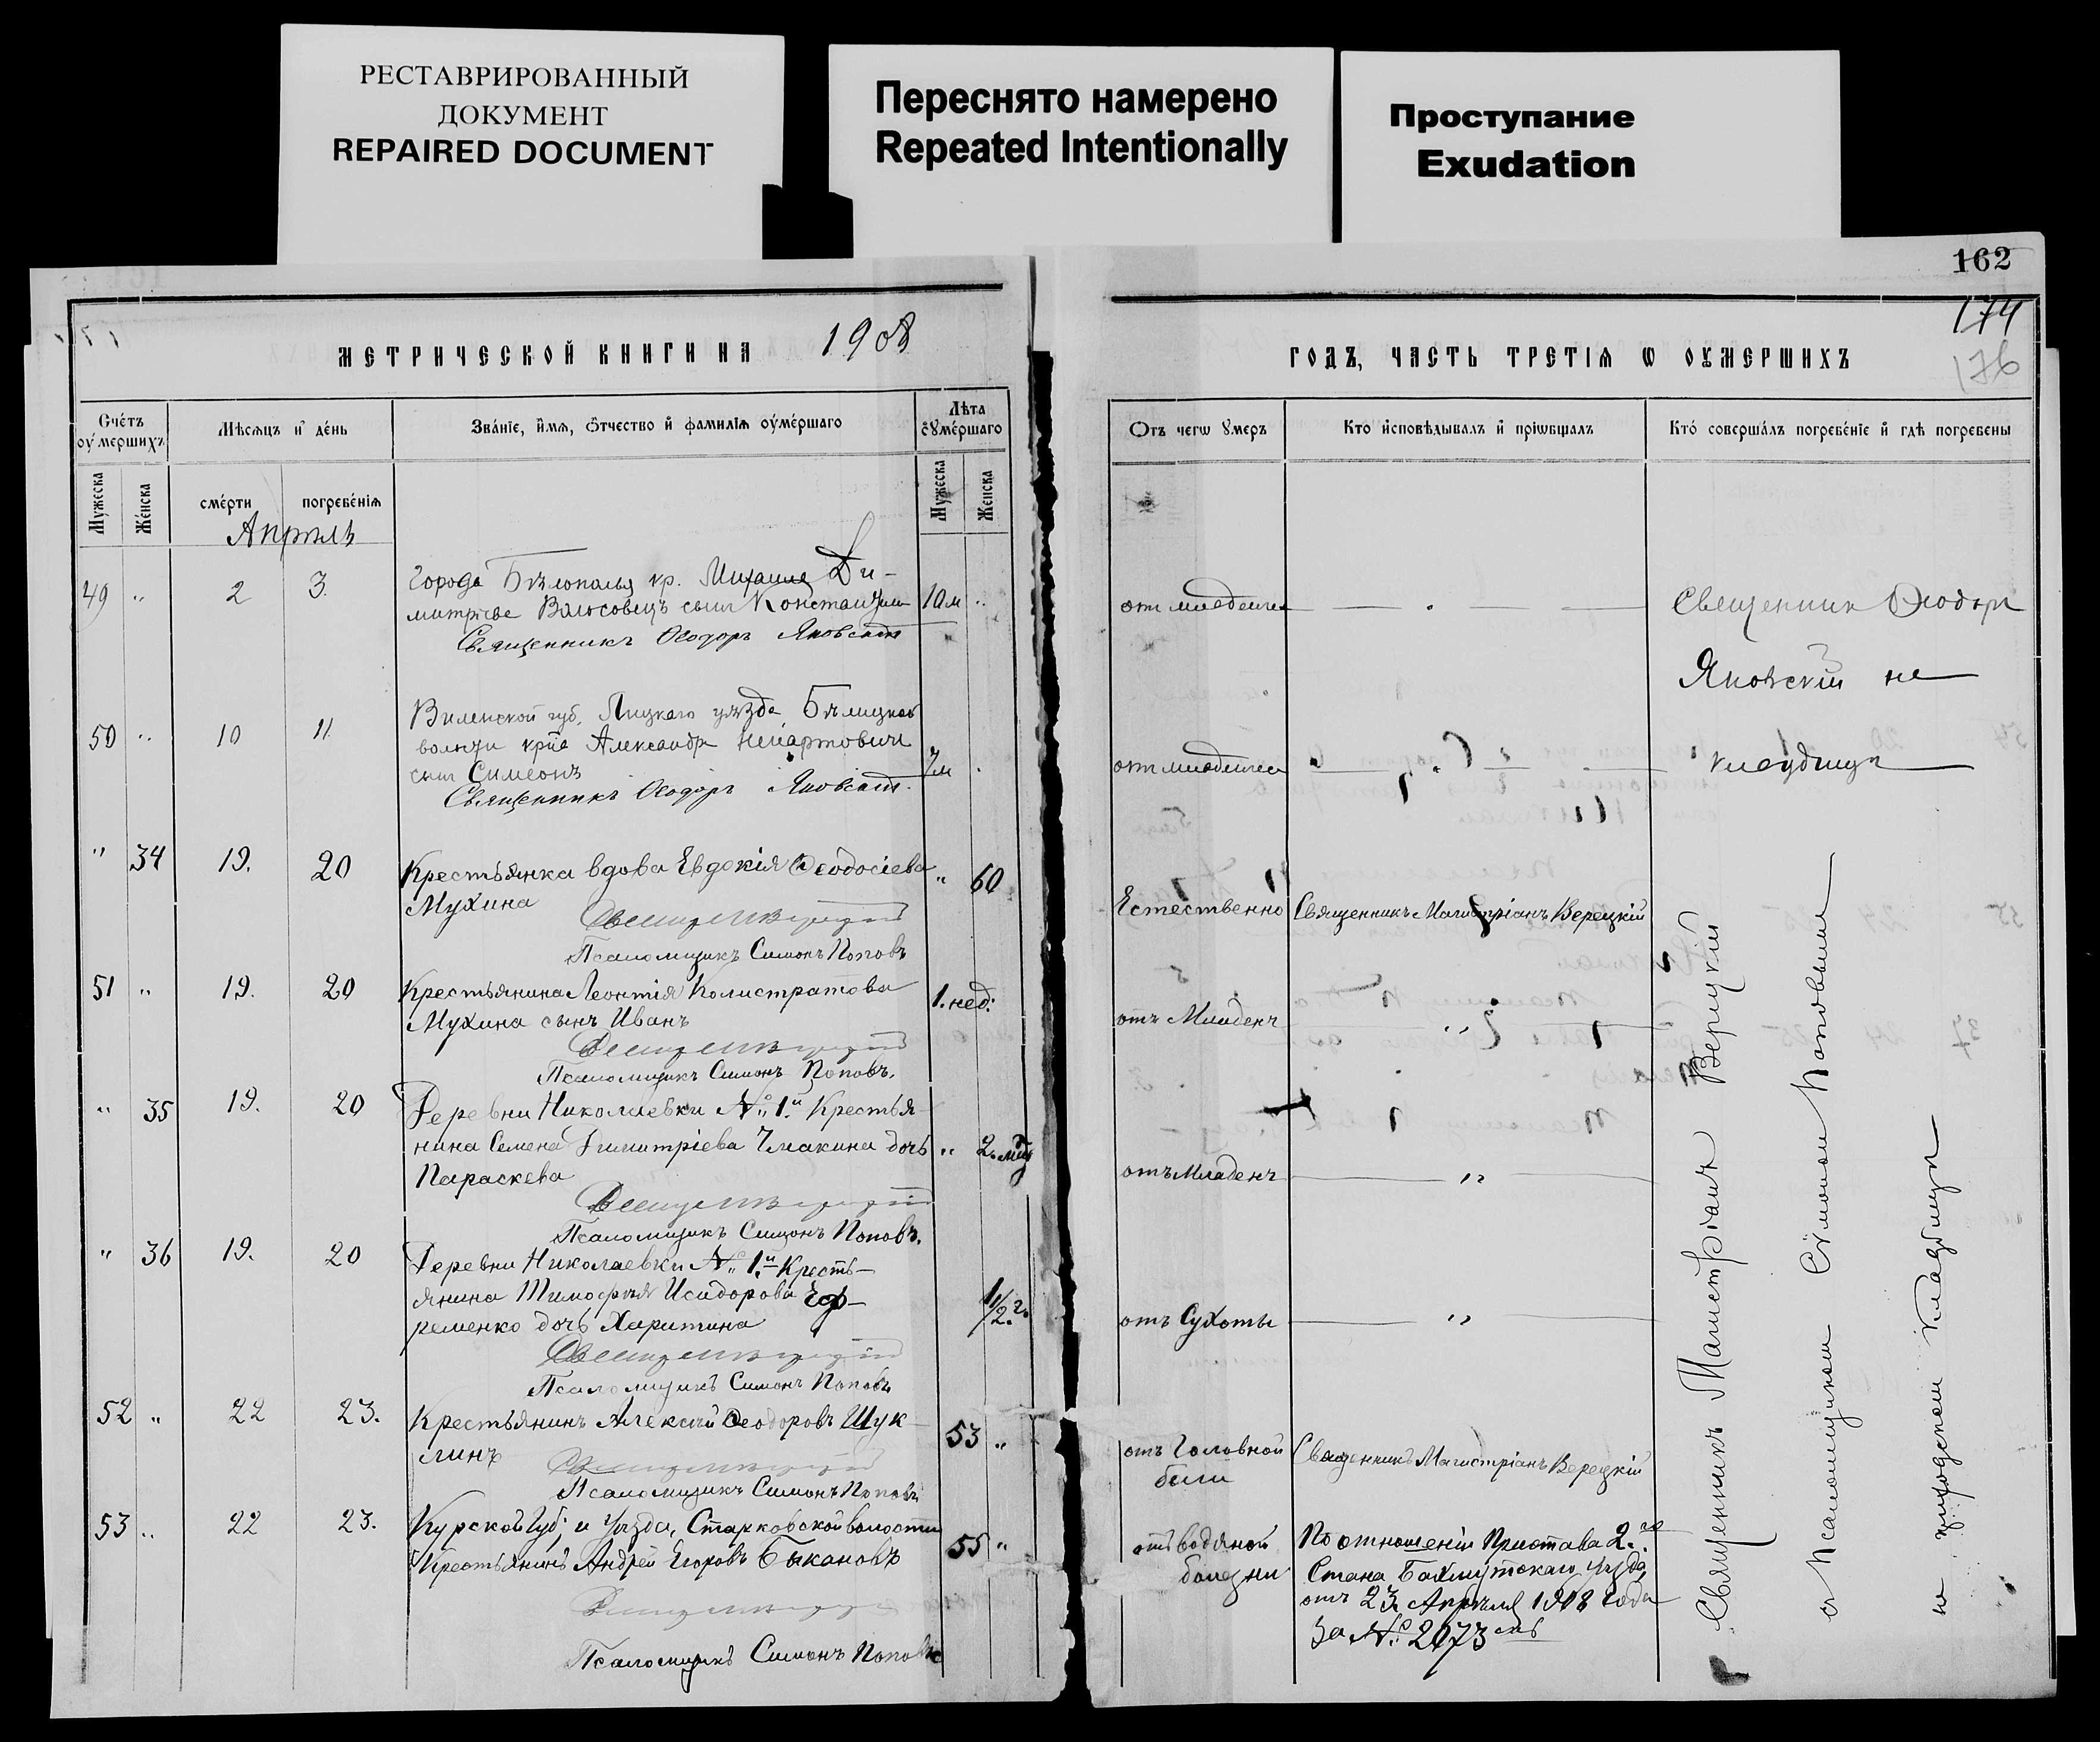 РЕСТАВРИРОВАННЫЙ
ДОКУМЕНТ
REPAIRED DOCUMENT
Переснято намерено
Repeated Intentionally
Проступание
Exudation
162
174
176
МЕТРИЧЕСКОЙ КНИГИ НА 1908
ГОДЪ, ЧАСТЬ ТРЕТІѦ Ѡ ОУМЕРШИХЪ
Счетъ оумершихъ
Мѣсѧцъ и день
Званіе, имѧ, ѿчество и фамиліѧ оумершаго
Лѣта оумершаго
Мужеска
Женска
смерти
погребеніѧ
Мужеска
Женска
Отъ чегѡ умеръ
Кто исповѣдывалъ и пріѡбщалъ
Кто совершалъ погребеніе и гдѣ погребены
Апрѣль
49 " 2 3.
Города Бѣлополья кр. Михаила Ди-
митріева сынъ Константинъ
10 м "
Священникъ Ѳеодоръ Яновскій
отъ младенч
Священникъ Ѳеодоръ
Яновскій на
кладбищѣ
50 " 10 11
Виленской губ. Лицкаго уѣзда Бѣлицкой
волости Александра
сынъ Симеонъ
7 м
Священникъ Ѳеодоръ Яновскій.
отъ младенчес
" 34 19. 20
Крестьянка вдова Евдокія Ѳеодосіева
Мухина
" 60
Псаломщикъ Симонъ Поповъ
Естественно
Священникъ Магистріанъ Верецкій
51 " 19. 20
Крестьянина Леонтія Колистратова
Мухина сынъ Иванъ
1. нед.
Псаломщикъ Симонъ Поповъ.
отъ Младенч
"
" 35 19. 20
Деревни Николаевки № 1й Крестья-
нина Семена Димитріева Чмакина дочь
Параскева
" 2.
Псаломщикъ Симонъ Поповъ.
отъ Младенч
"
" 36 19. 20
Деревни Николаевки № 1й Кресть-
янина Тимофѣя Исидорова Еф-
ременко дочь Харитина
1/2 г.
Псаломщикъ Симонъ Поповъ
отъ Сухоты
"
52 " 22 23.
Крестьянинъ Алексѣй Ѳеодоровъ Шук-
линъ
53 "
Псаломщикъ Симонъ Поповъ
отъ Головной
боли
Священникъ Магистріанъ Верецкій
53 " 22 23.
Курской Губ. и Уѣзда, Старковской волости
Крестьянинъ Андрей Егоровъ Быкановъ
55 "
Псаломщикъ Симонъ Поповъ
отъ водяной
болезни
По отношенію Пристава 2го
Стана Бахмутскаго Уѣзда,
отъ 23 Апрѣля 1908 года
за № 2073
Священникъ Магистріанъ Верецкій
съ Псаломщикомъ Симономъ Поповымъ
на приходскомъ кладбищѣ